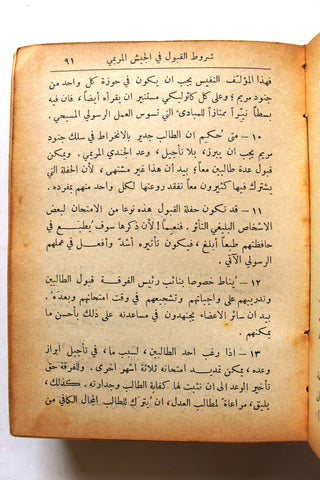 شروط القبول في الجيش المريمي ٩١
فهذا المؤلَّف النفيس يجب ان يكون في حوزة كل واحد من
جنود مريم؛ وعلى كل كاثوليكي مستنير ان يقرأه ايضاً، فان فيه
بسطاً نيّراً ممتازاً للمبادئ التي تسوس العمل الرسولي المسيحي.
١٠ — متى حُكِم ان الطالب جدير بالانخراط في سلك جنود
مريم يجب ان يبرز، بلا تأجيل، وعد الجندي المريمي. ويمكن
قبول عدة طالبين معاً؛ بيد ان هذا غير مشتهى، لأن الحفلة التي
يشترك فيها كثيرون معاً تفقد روعتها لكل واحد منهم بمفرده.
١١ — قد تكون حفلة القبول هذه نوعاً من الامتحان لبعض
الاشخاص البليغي التأثر. فنعِمّا! لأن ذكرها سوف يُطبَع في
حافظتهم طبعاً أبلغ، فيكون تأثيره أشدّ وأفعل في عملهم
الرسولي الآتي.
١٢ — يُناط خصوصاً بنائب رئيس الفرقة قبول الطالبين
وتدريبهم على واجباتهم وتشجيعهم في وقت امتحانهم وبعده.
بيد ان سائر الاعضاء يجتهدون في مساعدته بذلك بأحسن ما
يمكنهم.
١٣ — اذا رغب احد الطالبين، لسبب ما، في تأجيل ابراز
وعده، يمكن تمديد امتحانه ثلاثة اشهر اخرى. وللفرقة حق
تأخير الوعد الى ان تثبت لها كفاية الطالب وجدارته. كذلك،
يليق، مراعاةً لمطالب العدل، ان يُترك للطالب المجال الكافي من